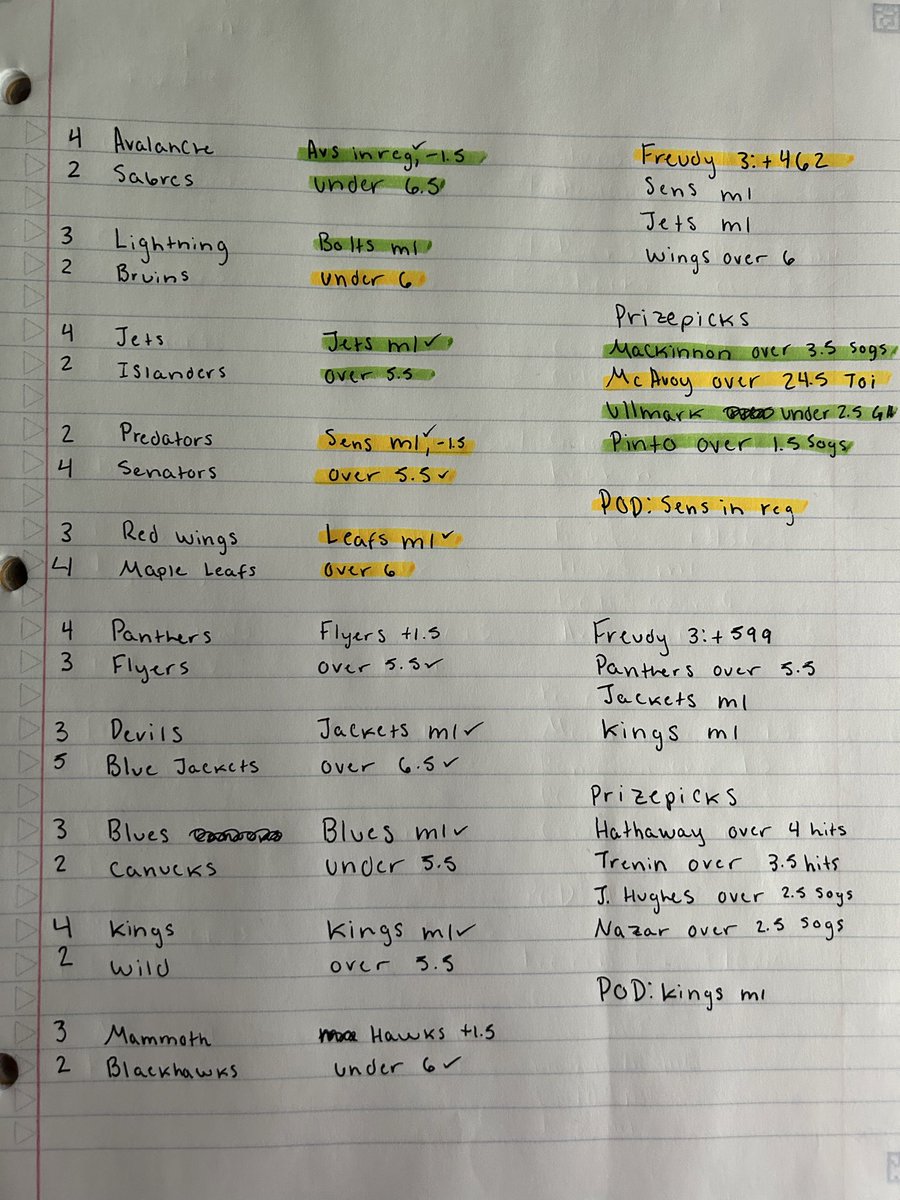 4 Avalanche Avs in reg,✓ -1.5
2 Sabres under 6.5
3 Lightning Bolts ml
2 Bruins under 6
4 Jets Jets ml ✓
2 Islanders over 5.5
2 Predators Sens ml,✓ -1.5
4 Senators over 5.5 ✓
3 Red wings Leafs ml ✓
4 Maple Leafs over 6
Freudy 3: +462
Sens ml
Jets ml
Wings over 6
Prizepicks
Mackinnon over 3.5 sogs
McAvoy over 24.5 Toi
Ullmark under 2.5 GA
Pinto over 1.5 Sogs
POD: Sens in reg
4 Panthers Flyers +1.5
3 Flyers over 5.5 ✓
3 Devils Jackets ml ✓
5 Blue Jackets over 6.5 ✓
3 Blues Blues ml ✓
2 Canucks under 5.5
4 Kings Kings ml ✓
2 Wild over 5.5
3 Mammoth Hawks +1.5
2 Blackhawks under 6 ✓
Freudy 3: +599
Panthers over 5.5
Jackets ml
Kings ml
Prizepicks
Hathaway over 4 hits
Trenin over 3.5 hits
J. Hughes over 2.5 Sogs
Nazar over 2.5 Sogs
POD: Kings ml